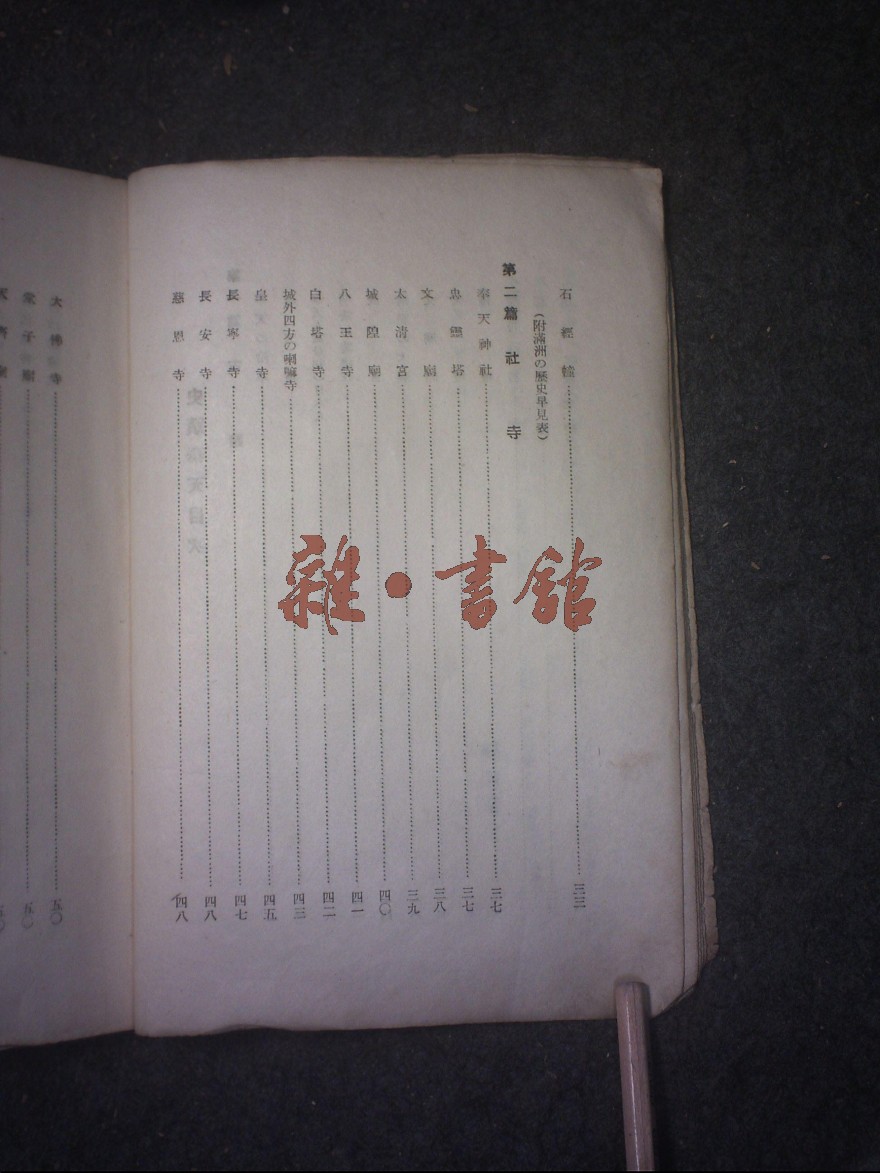 石經幢……三三
(附滿洲の歷史早見表)
第二篇 社寺
奉天神社……三七
忠靈塔……三七
文廟……三八
太清宮……三九
城隍廟……四〇
八王寺……四一
白塔寺……四二
城外四方の喇嘛寺……四三
皇寺……四五
長寧寺……四七
長安寺……四八
慈恩寺……四八
大佛寺……五〇
五〇
雜•書館